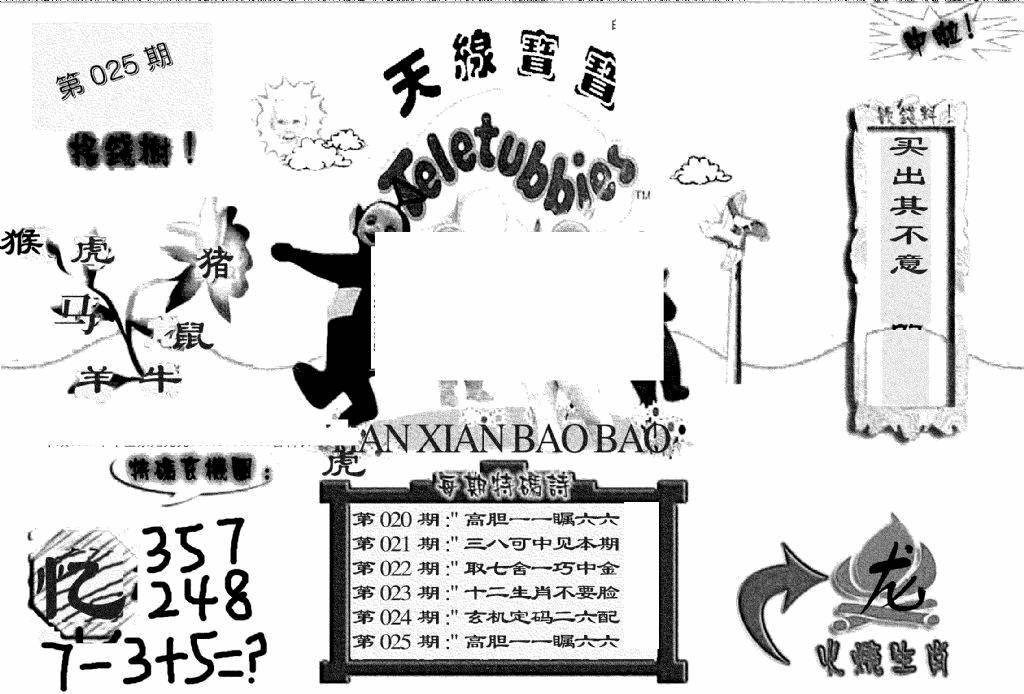 第 025 期
天線寶寶
Teletubbies
TM
中啦！
搖錢樹！
找錢料！
买出其不意
猴
虎
猪
马
鼠
羊 牛
AN XIAN BAO BAO
虎
特碼玄機圖：
忆
357
248
7-3+5=?
每期特碼詩
第 020 期:" 高胆一一瞩六六
第 021 期:" 三八可中见本期
第 022 期:" 取七舍一巧中金
第 023 期:" 十二生肖不要脸
第 024 期:" 玄机定码二六配
第 025 期:" 高胆一一瞩六六
龙
火燒生肖